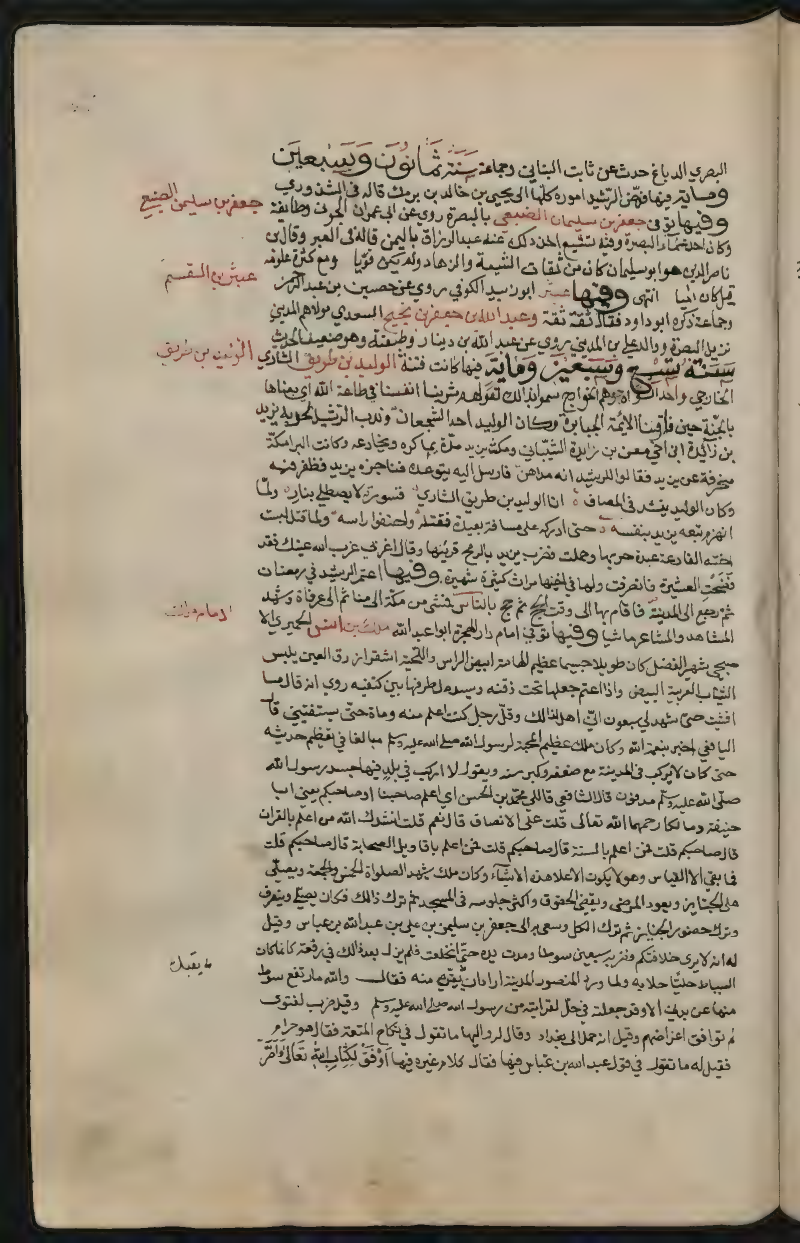 البصري الدباغ حدث عن ثابت البناني وجماعة سنة ثمانون وسبعين
وماية فيها فوض الرشيد اموره كلها الى يحيى بن خالد بن برمك قاله في الشذور وفي
وفيها توفي جعفر بن سليمان الضبعي بالبصرة روى عن ابي عمران الجوني وطايفة
جعفر بن سليمن الضبعي
وكان احد علماء البصرة وفيه تشيع اخذ ذلك عنه عبد الرزاق باليمن قاله في العبر وقال بن
ناصر الدين هو ابو سليمان كان من ثقات الشيعة والزهاد ولم يكن قويا ومع كثرة علومه
قيل كان اميا انتهى وفيها عبثر ابو زبيد الكوفي روى عن حصين بن عبد الرحمن
عبثر بن القسم
وجماعة ذكره ابو داود فقال ثقة ثقة وعبد الله بن جعفر بن نجيح السعدي مولاهم المديني
نزيل البصرة ووالد علي بن المديني روى عن عبد الله بن دينار وطبقته وهو ضعيف الحديث
سنة تسع وسبعين وماية فيها كانت فتنة الوليد بن طريق الشاري
الوليد بن طريق
الخارجي واحد الشراة وهم الخوارج سموا بذلك لقولهم شرينا انفسنا في طاعة الله اي بعناها
بالجنة حين فارقنا الايمة الجبابرة وكان الوليد احد الشجعان وندب الرشيد لحربه يزيد
بن زايدة ابن اخي معن بن زايدة الشيباني ومكث يزيد مدة يماكره ويخادعه وكانت البرامكة
منحرفة عن يزيد فقالوا للرشيد انه مداهن فارسل اليه يتوعده فناجزه يزيد فظفر فيه
وكان الوليد ينشد في المصاف انا الوليد بن طريق الشاري قسورة لا يصطلى بناري ولما
انهزم تبعه يزيد بنفسه حتى ادركه على مسافة بعيدة فقتله واحتز راسه ولما قتل لبست
اخته الفارعة عدة حربها وحملت فضرب يزيد بالرمح قرينها وقال اغربي غرب الله عينك فقد
فضحت العشيرة فانصرفت ولها في اخيها مراث كثيرة شهيرة وفيها اعتمر الرشيد في رمضان
ثم رجع الى المدينة فاقام بها الى وقت الحج ثم حج بالناس فمشى من مكة الى منا ثم الى عرفاة وشهد
المشاهد والمشاعر ماشيا وفيها توفي امام دار الهجرة ابو عبد الله ملك بن انس الحميري الا
صبحي شهير الفضل كان طويلا جسيما عظيم الهامة ابيض الراس واللحية اشقر ازرق العين يلبس
الثياب العربية البيض واذا اعتم جعلها تحت ذقنه ويسدل طرفها بين كتفيه روي انه قال ما
افتيت حتى شهد لي سبعون اني اهل لذالك وقل رجل كنت اعلم منه ومات حتى يستفتيني قا
اليافعي اخبر بنعمة الله وكان ملك عظيم المحبة لرسول الله صلى الله عليه وسلم مبالغا في تعظيم حديثه
حتى كان لا يركب في المدينة مع ضعفه وكبر سنه ويقول لا اركب في بلد فيها جسد رسول الله
صلى الله عليه وسلم مدفون قال الشافعي قال لي محمد بن الحسن اي اعلم صاحبنا او صاحبكم يعني ابا
حنيفة ومالكا رحمهما الله تعالى قلت على الانصاف قال نعم قلت انشدك الله من اعلم بالقران
قال صاحبكم قلت فمن اعلم بالسنة قال صاحبكم قلت فمن اعلم باقاويل الصحابة قال صاحبكم قلت
فما بقي الا القياس وهو لا يكون الا على هذه الاشياء وكان ملك يشهد الصلواة الخمس والجمعة ويصلي
على الجنايز ويعود المرضى ويقضي الحقوق واكثر جلوسه في المسجد ثم ترك ذالك فكان يصلي وينصرف
وترك حضور الجنايز ثم ترك الكل وسعي به الى جعفر بن سليمن بن علي بن عبد الله بن عباس وقيل
له انه لا يرى خلافتكم فضربه سبعين سوطا ومدت يده حتى انخلعت فلم يزل بعد ذالك في رفعة كانما كان
السياط حليا حلا به ولما ورد المنصور المدينة اراد ان يقيده منه فقال والله ما رتفع سوط
منها عن بدني الا وقد جعلته في حل لقرابته من رسول الله صلى الله عليه وسلم وقيل ضرب لفتوى
لم توافق اغراضهم وقيل انه حمل الى بغداد وقال له واليها ما تقول في نكاح المتعة فقال هو حرام
فقيل له ما تقول في قول عبد الله بن عباس فيها فقال كلام غيره فيها اوفق لكتاب الله تعالى واصر